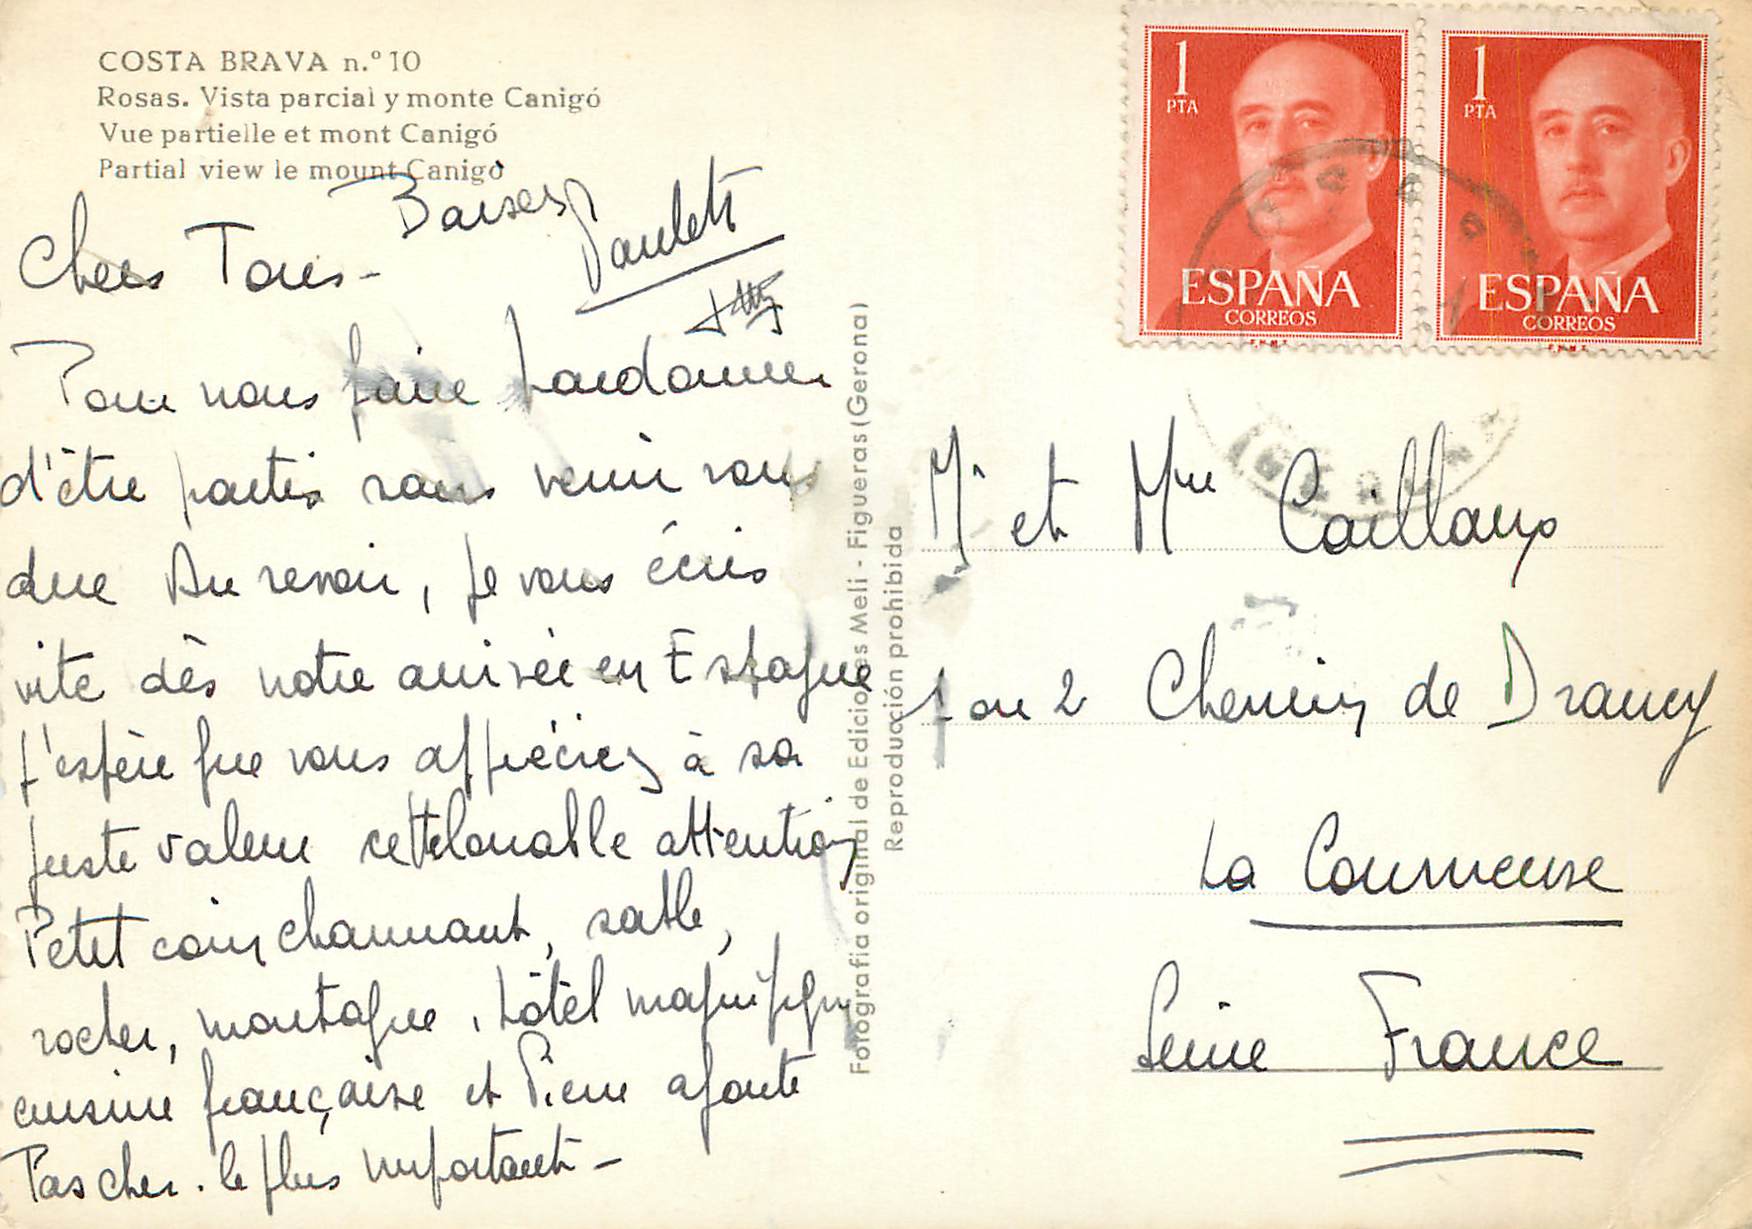 COSTA BRAVA n.º 10
Rosas. Vista parcial y monte Canigó
Vue partielle et mont Canigó
Partial view le mount Canigó
Baises Paulett
Chers Tous -
Pour nous faire pardonner
d'être partis sans venir vous
dire Au revoir, je vous écris
vite dès notre arrivée en Espagne
j'espère que vous apprécierez à sa
juste valeur cette louable attention
Petit coin charmant, sable,
rocher, montagne, hôtel magnifique
cuisine française et Pierre ajoute
Pas cher. le plus important -
Fotografía original de Ediciones Meli - Figueras (Gerona)
Reproducción prohibida
1 PTA
ESPAÑA
CORREOS
F.N.M.T.
1 PTA
ESPAÑA
CORREOS
F.N.M.T.
Mr et Mme Caillaux
1 ou 2 Chemin de Drancy
La Courneuve
Seine France